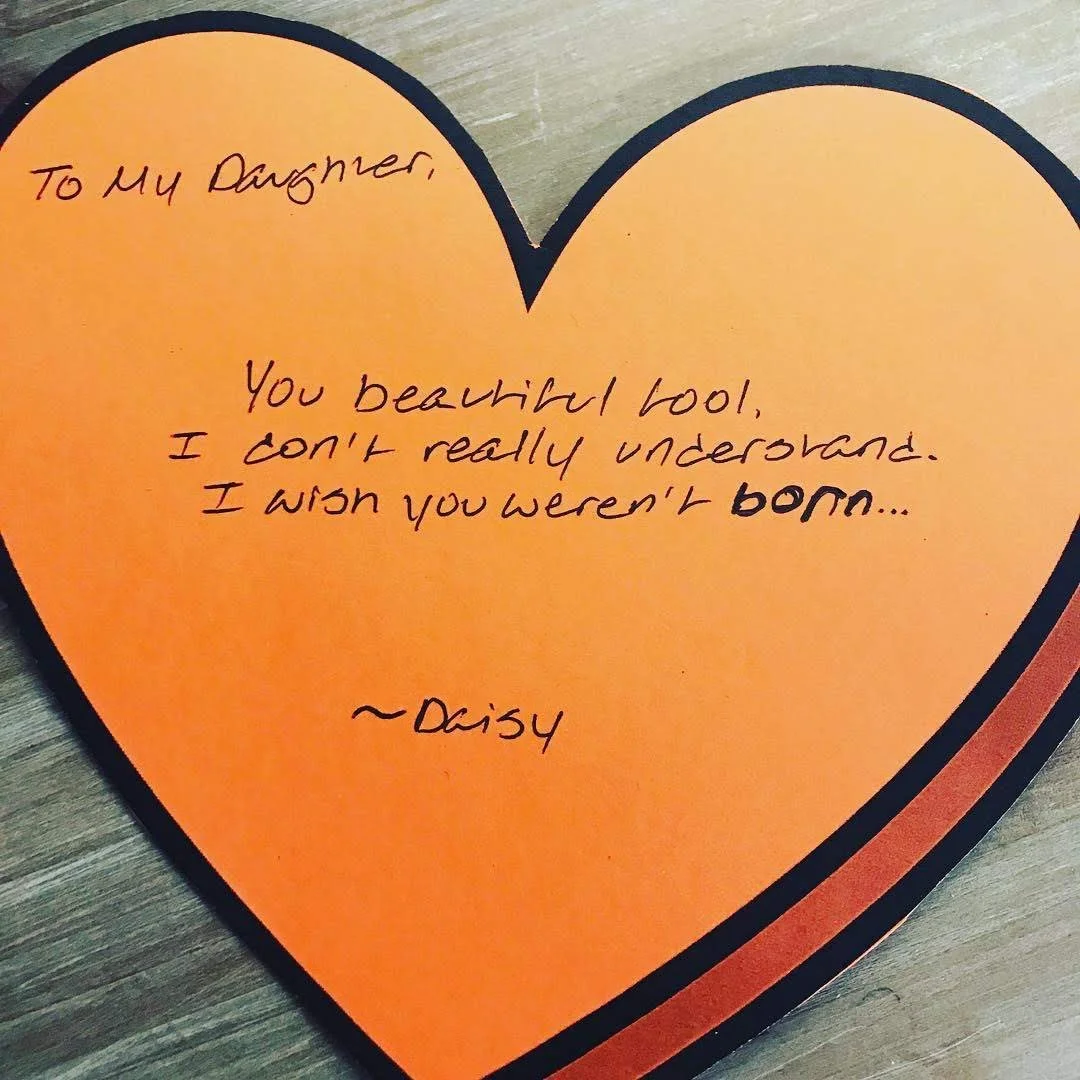 To My Daughter,
You beautiful fool,
I don't really understand.
I wish you weren't born...
~Daisy